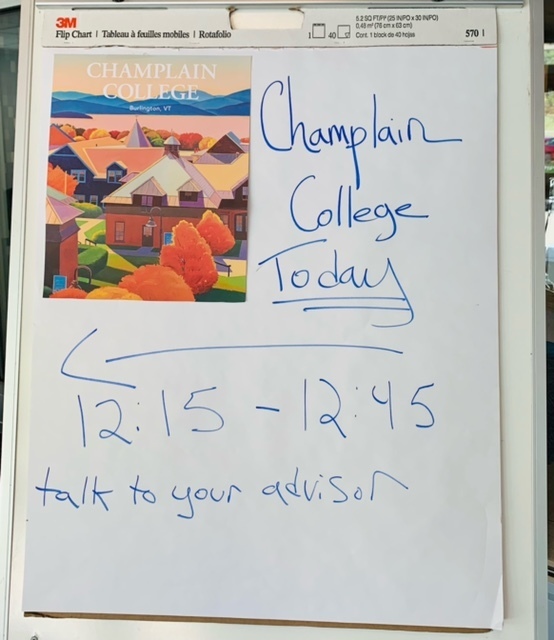 3M
Flip Chart | Tableau à feuilles mobiles | Rotafolio
1 40
5.2 SQ FT/PY (25 IN/PO x 30 IN/PO)
0,48 m² (76 cm x 63 cm)
Cont. 1 block de 40 hojas
570
CHAMPLAIN
COLLEGE
Burlington, VT
Champlain
College
Today
12:15 - 12:45
talk to your advisor